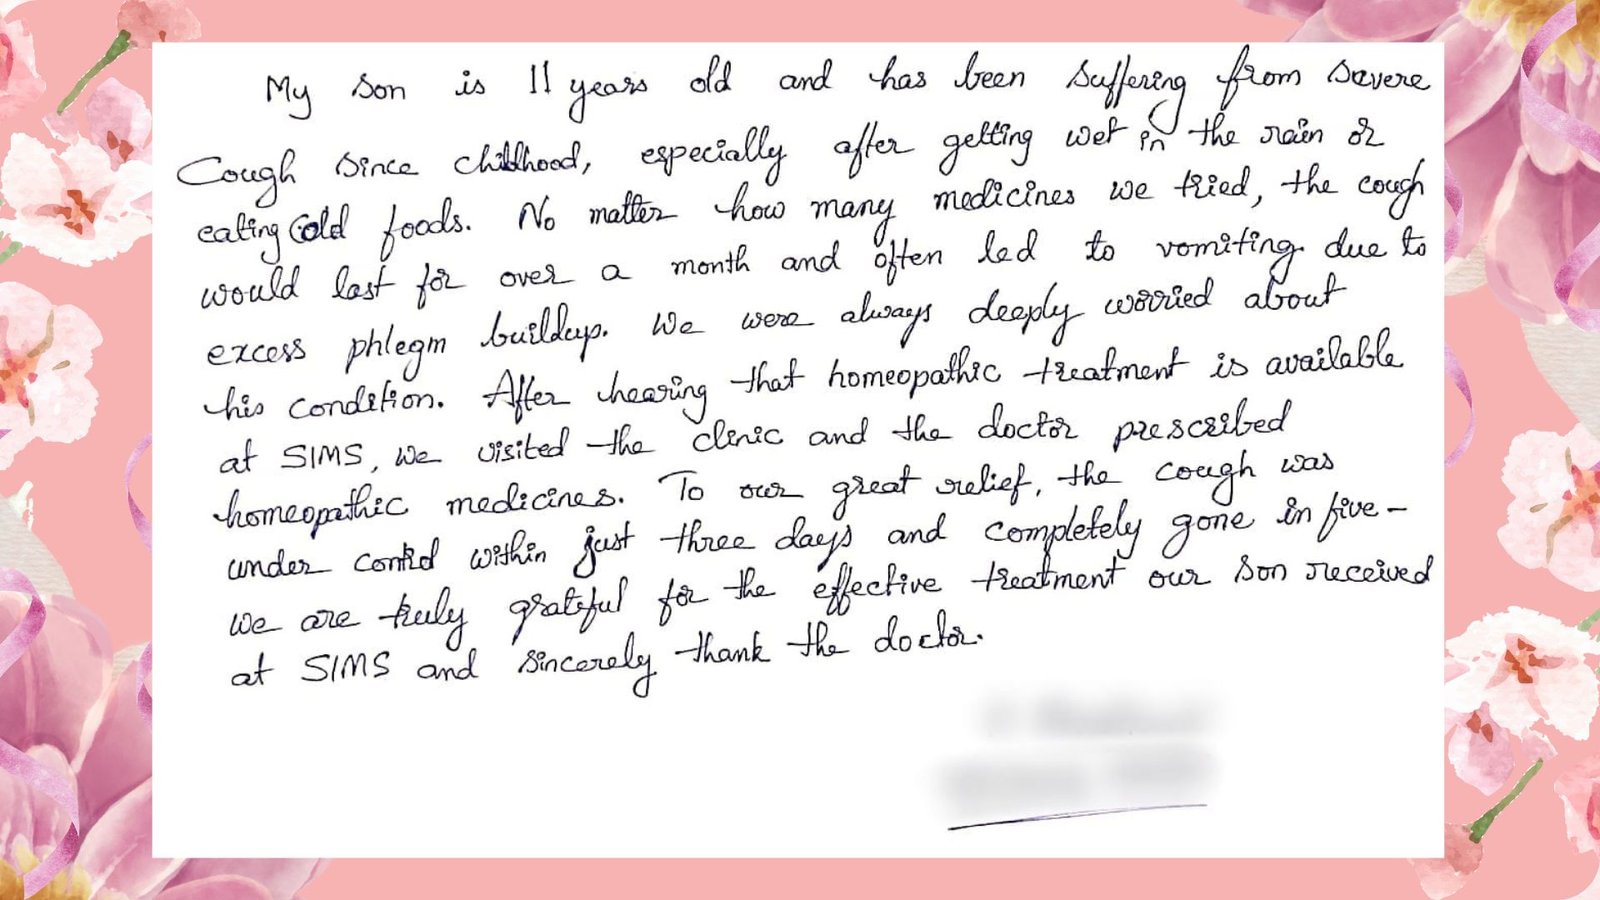 My son is 11 years old and has been suffering from severe
Cough since childhood, especially after getting wet in the rain or
eating Cold foods. No matter how many medicines we tried, the cough
would last for over a month and often led to vomiting due to
excess phlegm buildup. We were always deeply worried about
his condition. After hearing that homeopathic treatment is available
at SIMS, we visited the clinic and the doctor prescribed
homeopathic medicines. To our great relief, the cough was
under control within just three days and completely gone in five-
we are truly grateful for the effective treatment our son received
at SIMS and sincerely thank the doctor.